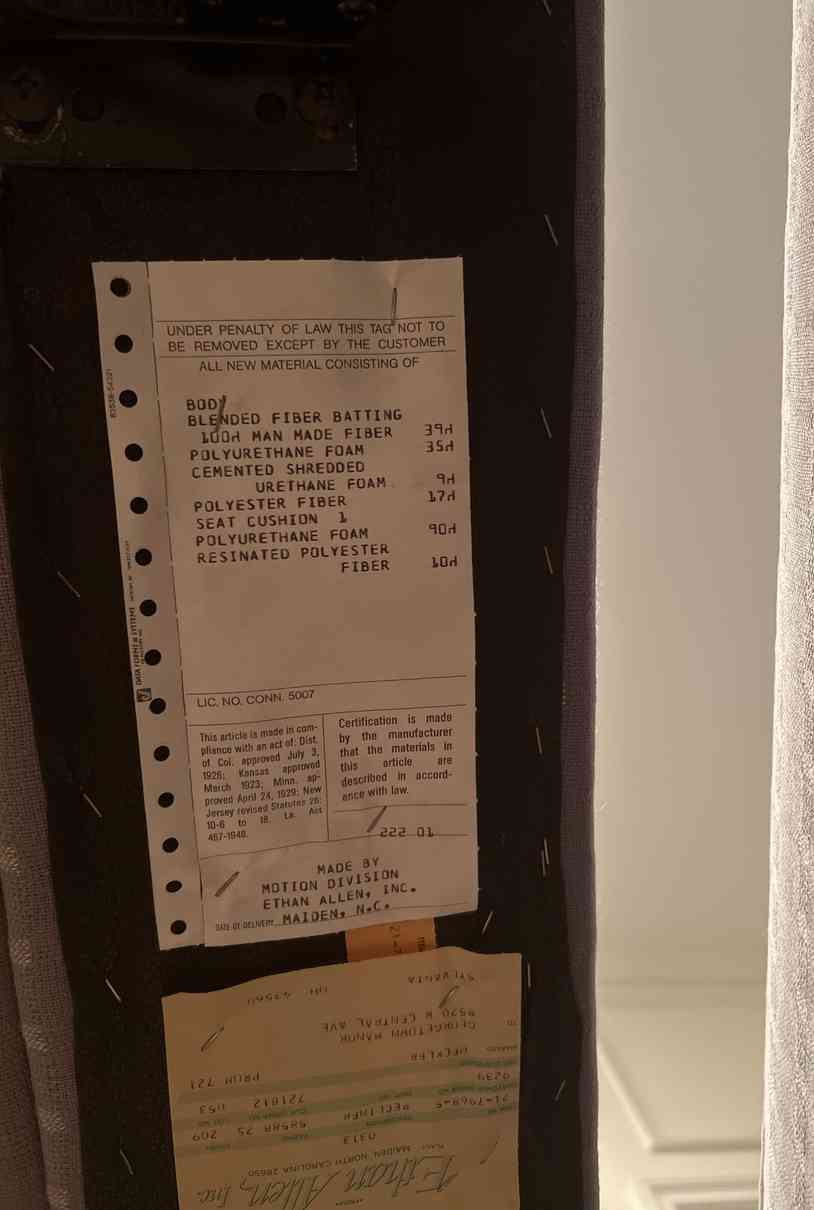 UNDER PENALTY OF LAW THIS TAG NOT TO
BE REMOVED EXCEPT BY THE CUSTOMER
ALL NEW MATERIAL CONSISTING OF
BODY
BLENDED FIBER BATTING
100% MAN MADE FIBER 39%
POLYURETHANE FOAM 35%
CEMENTED SHREDDED
URETHANE FOAM 9%
POLYESTER FIBER 17%
SEAT CUSHION 1
POLYURETHANE FOAM 90%
RESINATED POLYESTER
FIBER 10%
LIC. NO. CONN. 5007
This article is made in com-
pliance with an act of: Dist.
of Col. approved July 3,
1926; Kansas approved
March 1923; Minn. ap-
proved April 24, 1929; New
Jersey revised Statutes 26:
10-6 to 18. La. Act
467-1948.
Certification is made
by the manufacturer
that the materials in
this article are
described in accord-
ance with law.
222 01
MADE BY
MOTION DIVISION
ETHAN ALLEN, INC.
DATE OF DELIVERY MAIDEN, N.C.
DATA FORMS & SYSTEMS
Ethan Allen, Inc.
MAIDEN, NORTH CAROLINA 28650
0313
21-7968-5 RECLINER 5858R 75 209
9239 721812 U53
HECKLER PRUM 721
TO GEORGETOWN MANOR
9520 W CENTRAL AVE
SYLVANIA OH 43560